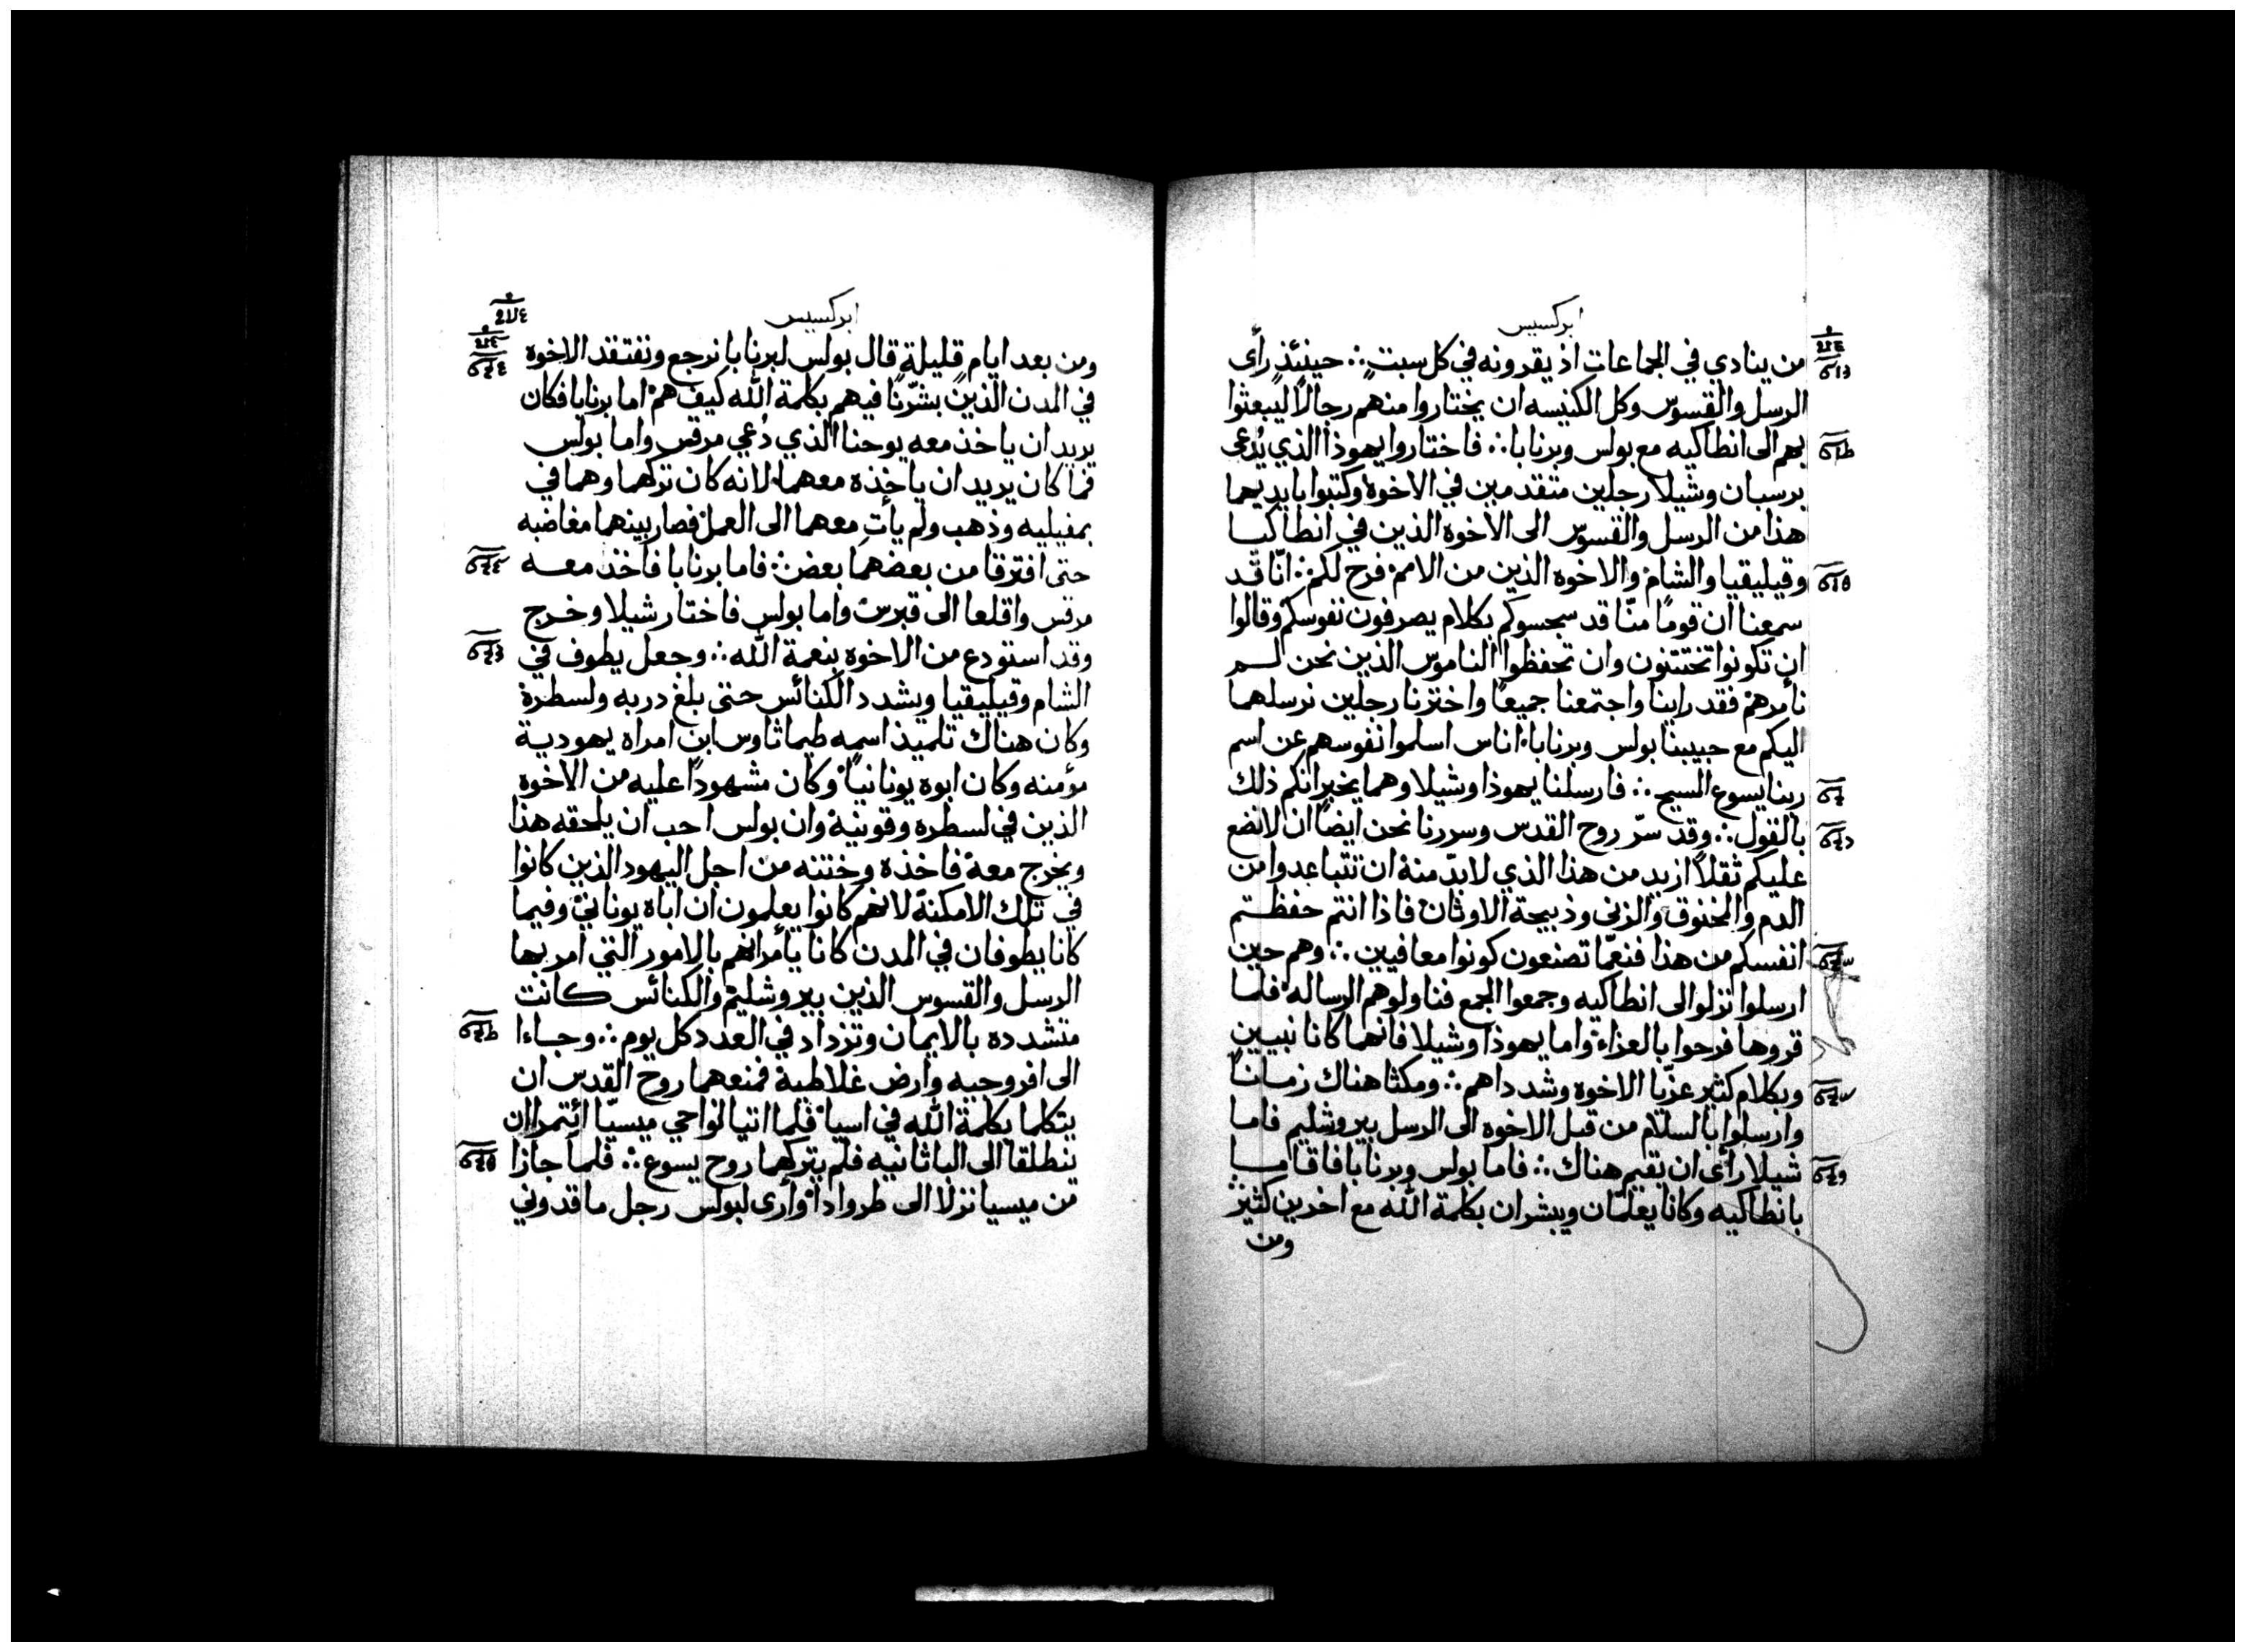 ابركسيس
من ينادي في الجماعات اذ يقرونه في كل سبت ∴ حينئذ رأى
الرسل والقسوس وكل الكنيسه ان يختاروا منهم رجالاً ليبعثوا
بهم الى انطاكيه مع بولس وبرنابا ∴ فاختاروا يهوذا الذي يُدعى
برسبان وشيلا رجلين متقدمين في الاخوة وكتبوا بايديهما
هذا من الرسل والقسوس الى الاخوه الذين في انطاكيا
وقيليقيا والشام والاخوه الذين من الامم فرح لكم ∴ انّا قد
سمعنا ان قومًا منّا قد سجسوكم بكلام يصرفون نفوسكم وقالوا
ان تكونوا تختتنون وان تحفظوا الناموس الذين نحن لم
نأمرهم فقد راينا واجتمعنا جميعًا واخترنا رجلين نرسلهما
اليكم مع حبيبنا بولس وبرنابا اناس اسلموا نفوسهم عن اسم
ربنا يسوع المسيح ∴ فارسلنا يهوذا وشيلا وهما يخبرانكم ذلك
بالقول ∴ وقد سرّ روح القدس وسررنا نحن ايضًا ان لا نضع
عليكم ثقلاً ازيد من هذا الذي لا بدّ منه ان تتباعدوا من
الدم والمخنوق والزنى وذبيحة الاوثان فاذا انتم حفظتم
انفسكم من هذا فنعمّا تصنعون كونوا معافيين ∴ وهم حين
ارسلوا نزلوا الى انطاكيه وجمعوا الجمع فناولوهم الرساله فلما
قروها فرحوا بالعزاء واما يهوذا وشيلا فانهما كانا نبيين
وبكلام كثير عزّيا الاخوه وشدداهم ∴ ومكثا هناك زمانًا
وارسلوا بالسلام من قبل الاخوه الى الرسل بيروشليم فاما
شيلا رأى ان يقيم هناك ∴ فاما بولس وبرنابا فاقاما
بانطاكيه وكانا يعلمّان ويبشران بكلمة الله مع اخرين كثيرٍ
ومن
ابركسيس
ومن بعد ايام قليلةٍ قال بولس لبرنابا نرجع ونفتقد الاخوه
في المدن الذين بشّرنا فيهم بكلمة الله كيف هم اما برنابا فكان
يريد ان ياخذ معه يوحنا الذي دُعي مرقس واما بولس
فما كان يريد ان ياخذه معهما لانه كان تركهما وهما في
بمفيليه وذهب ولم يأتِ معهما الى العمل فصار بينهما مغاضبه
حتى افترقا من بعضهما بعض ∴ فاما برنابا فاخذ معه
مرقس واقلعا الى قبرس واما بولس فاختار شيلا وخرج
وقد استودع من الاخوه بنعمة الله ∴ وجعل يطوف في
الشام وقيليقيا ويشدد الكنائس حتى بلغ دربه ولسطرة
وكان هناك تلميذ اسمه طيماثاوس ابن امراه يهودية
مؤمنه وكان ابوه يونانيًا وكان مشهودًا عليه من الاخوه
الذين في لسطره وقونية وان بولس احب ان يلحقه هذا
ويخرج معه فاخذه وختنه من اجل اليهود الذين كانوا
في تلك الامكنة لانهم كانوا يعلمون ان اباه يوناني وفيما
كانا يطوفان في المدن كانا يأمرانهم بالامور التي امر بها
الرسل والقسوس الذين بيروشليم والكنائس كانت
متشدده بالايمان وتزداد في العدد كل يوم ∴ وجاءا
الى افروجيه وارض غلاطية فمنعهما روح القدس ان
يتكلما بكلمة الله في اسيا فلما اتيا نواحي ميسيّا ائتمرا ان
ينطلقا الى الباثانيه فلم يتركهما روح يسوع ∴ فلما جازا
من ميسيا نزلا الى طروادا وأرى لبولس رجل ماقدوني